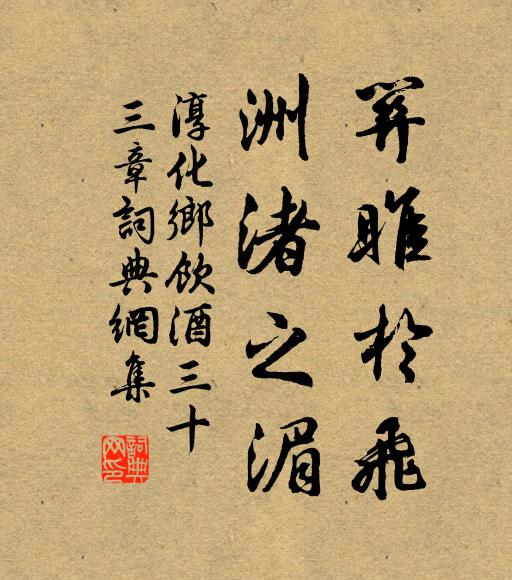 關雎於飛
洲渚之湄
淳化鄉飲酒三十
三章詞典網集
詞典
网印